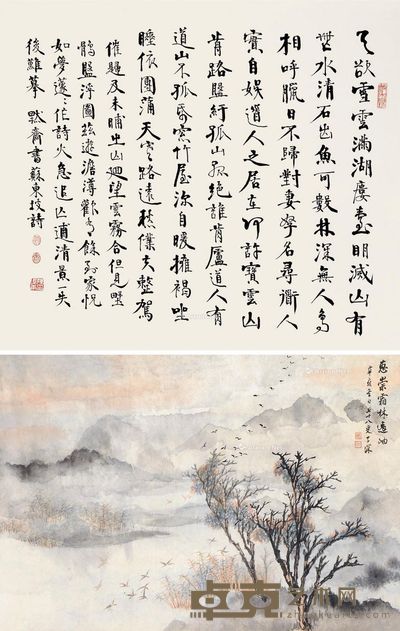 天欲雪雲滿湖廔臺明滅山有
無水清石出魚可數林深無人鳥
相呼臘日不歸對妻孥名尋衜人
實自娛道人之居在何許寶雲山
歬路盤紆孤山孤絕誰肯廬道人有
道山不孤帋窗竹屋深自暖擁褐坐
睡依團蒲天寒路遠愁僕夫整駕
催歸及未晡出山迴望雲霧合但見埜
鶻盤浮圖茲遊澹薄歡有餘到家怳
如夢蘧〻作詩火急追亡逋清景一失
後難摹 默齋書蘇東坡詩
霜林遠
卓克艺术网